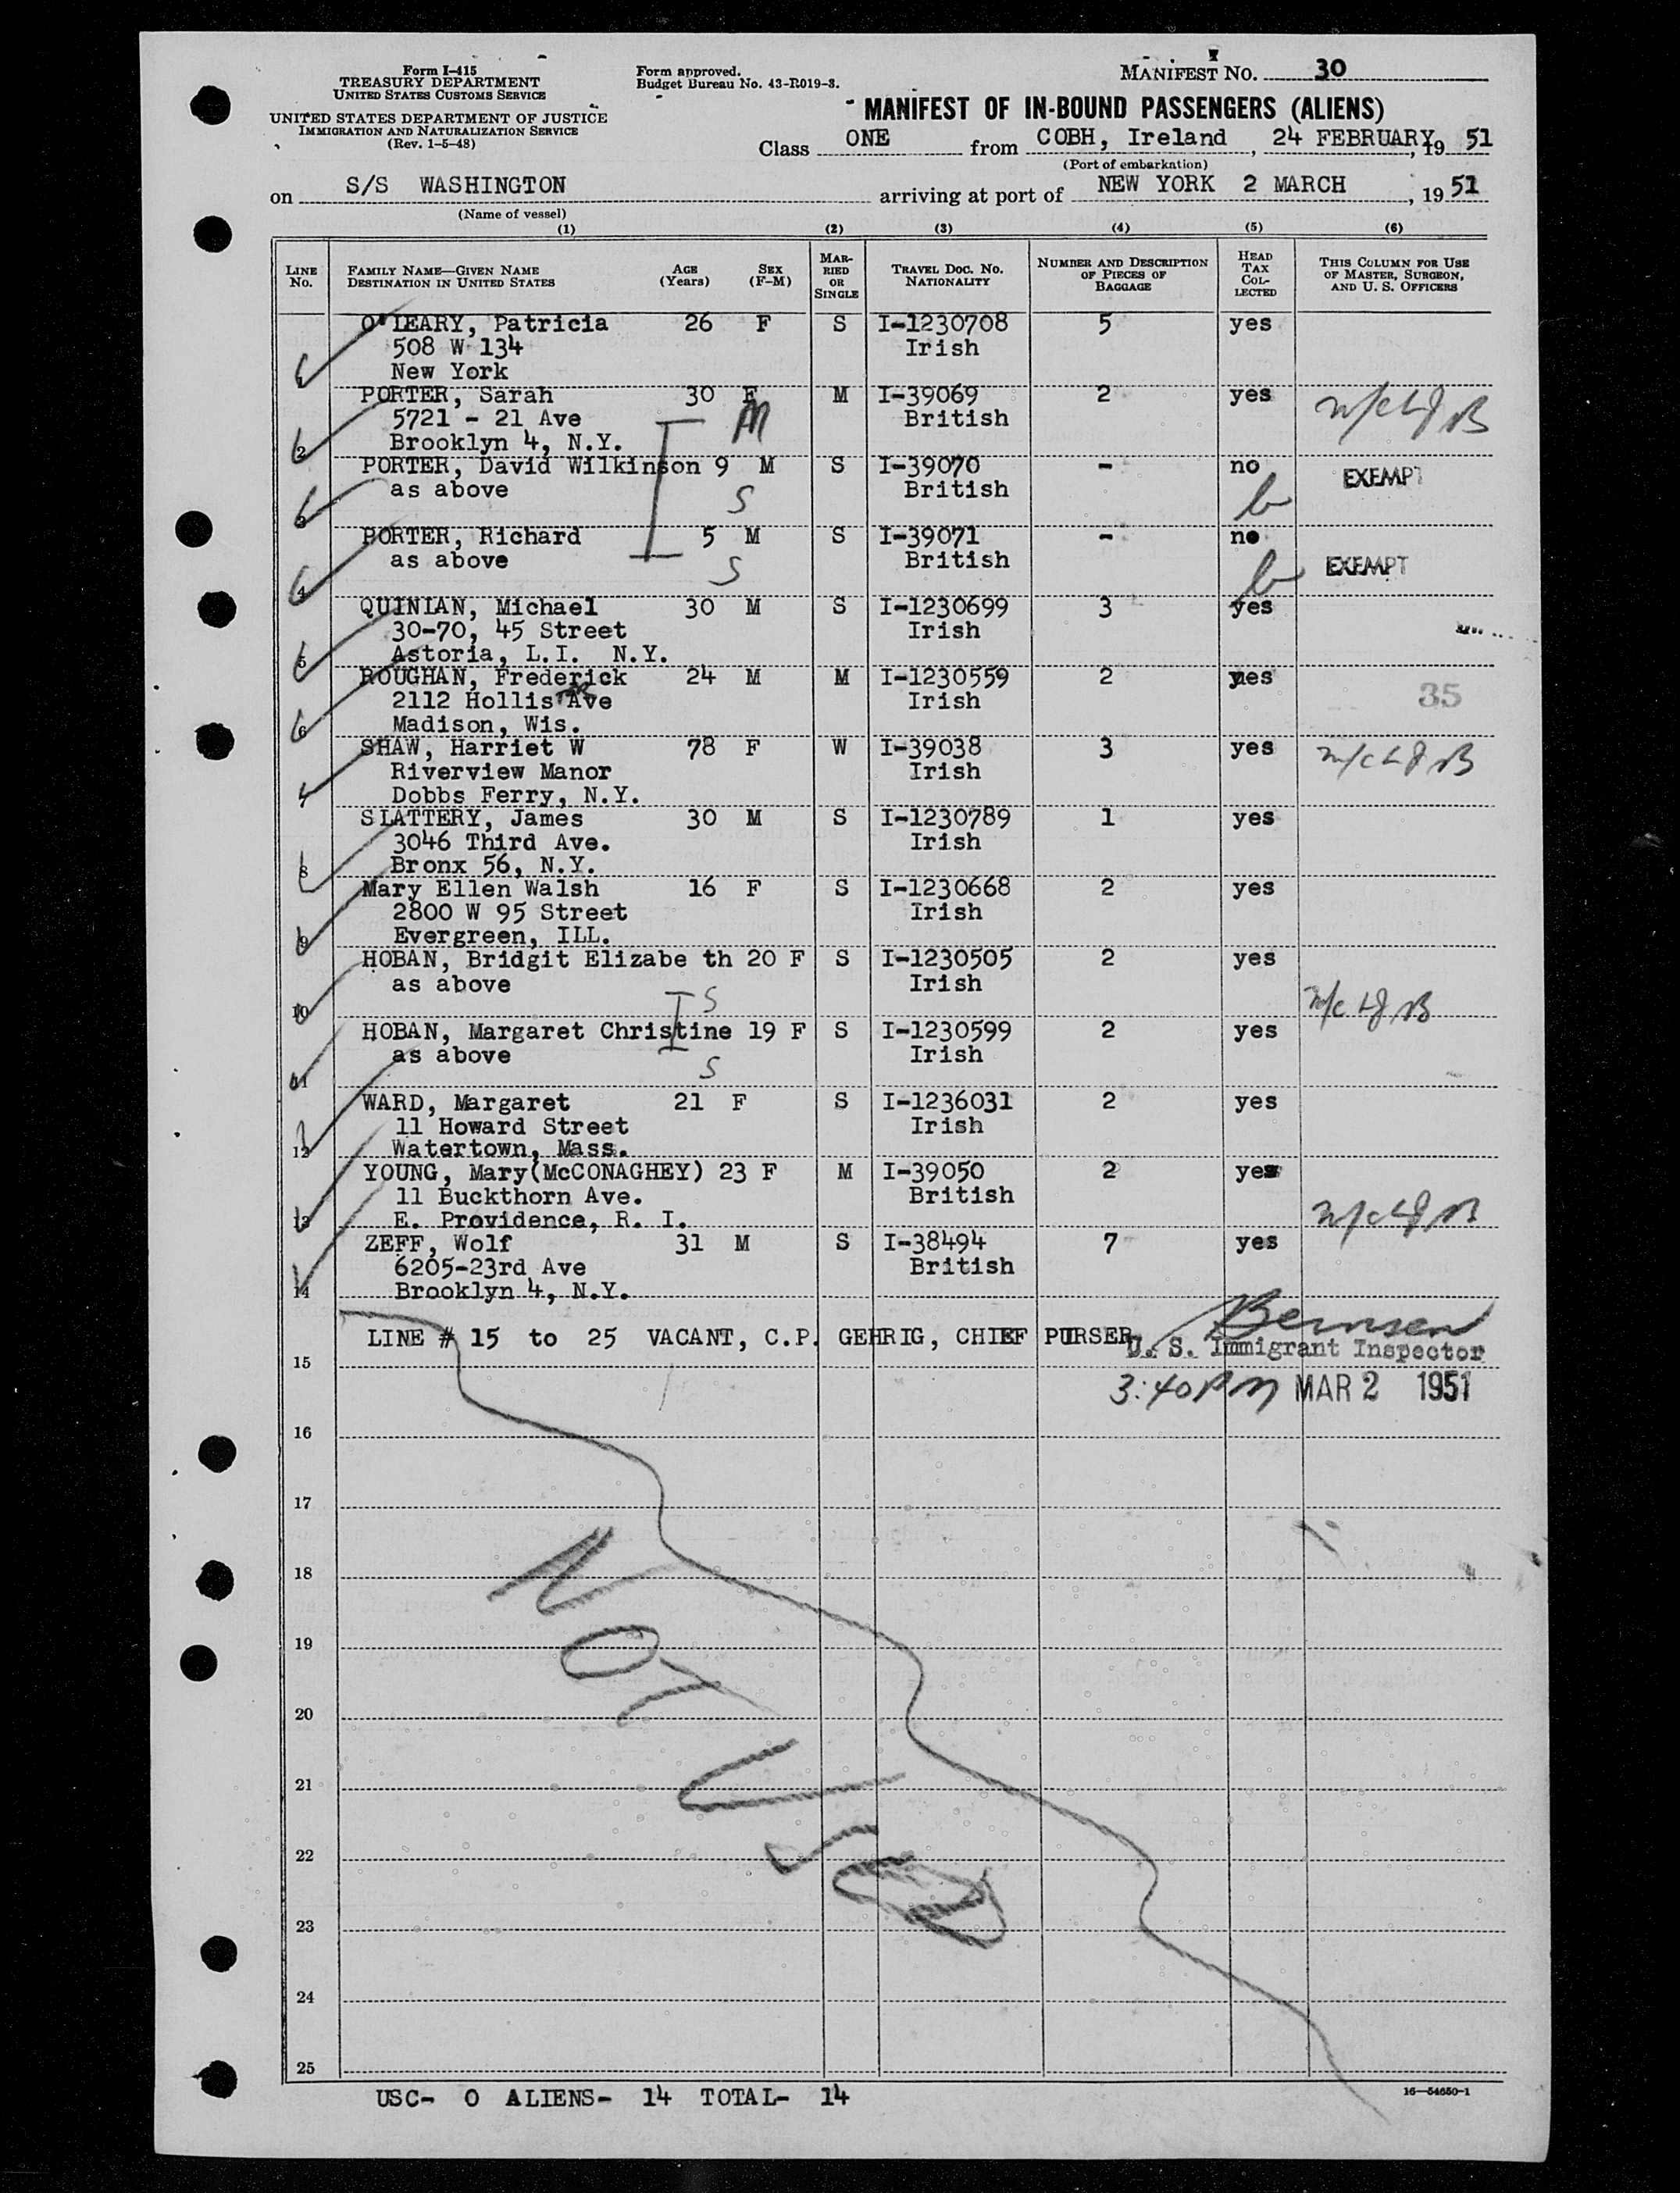 Form I-415
TREASURY DEPARTMENT
UNITED STATES CUSTOMS SERVICE
UNITED STATES DEPARTMENT OF JUSTICE
IMMIGRATION AND NATURALIZATION SERVICE
(Rev. 1-5-48)
Form approved.
Budget Bureau No. 43-R019-3.
MANIFEST NO. 30
MANIFEST OF IN-BOUND PASSENGERS (ALIENS)
Class ONE from COBH, Ireland, 24 FEBRUARY, 19 51
(Port of embarkation)
on S/S WASHINGTON arriving at port of NEW YORK 2 MARCH, 19 51
(Name of vessel)
(1) (2) (3) (4) (5) (6)
LINE NO. FAMILY NAME—GIVEN NAME DESTINATION IN UNITED STATES AGE (Years) SEX (F-M) MARRIED OR SINGLE TRAVEL DOC. NO. NATIONALITY NUMBER AND DESCRIPTION OF PIECES OF BAGGAGE HEAD TAX COLLECTED THIS COLUMN FOR USE OF MASTER, SURGEON, AND U. S. OFFICERS
O'LEARY, Patricia 26 F S I-1230708 5 yes
508 W 134 Irish
New York
PORTER, Sarah 30 F M I-39069 2 yes
5721 - 21 Ave M British
2 Brooklyn 4, N.Y.
PORTER, David Wilkinson 9 M S I-39070 - no EXEMPT
as above S British
3
PORTER, Richard 5 M S I-39071 - no
as above S British EXEMPT
4
QUINLAN, Michael 30 M S I-1230699 3 yes
30-70, 45 Street Irish
5 Astoria, L.I. N.Y.
ROUGHAN, Frederick 24 M M I-1230559 2 yes
2112 Hollis Ave Irish 35
6 Madison, Wis.
SHAW, Harriet W 78 F W I-39038 3 yes
Riverview Manor Irish
Dobbs Ferry, N.Y.
SLATTERY, James 30 M S I-1230789 1 yes
3046 Third Ave. Irish
8 Bronx 56, N.Y.
Mary Ellen Walsh 16 F S I-1230668 2 yes
2800 W 95 Street Irish
9 Evergreen, ILL.
HOBAN, Bridgit Elizabe th 20 F S I-1230505 2 yes
as above S Irish
10
HOBAN, Margaret Christine 19 F S I-1230599 2 yes
as above S Irish
11
WARD, Margaret 21 F S I-1236031 2 yes
11 Howard Street Irish
12 Watertown, Mass.
YOUNG, Mary(McCONAGHEY) 23 F M I-39050 2 yes
11 Buckthorn Ave. British
13 E. Providence, R. I.
ZEFF, Wolf 31 M S I-38494 7 yes
6205-23rd Ave British
14 Brooklyn 4, N.Y.
LINE # 15 to 25 VACANT, C.P. GEHRIG, CHIEF PURSER
U. S. Immigrant Inspector
15
3:40 PM MAR 2 1951
16
17
18
19
20
21
22
23
24
25
NOT USED
USC- 0 ALIENS- 14 TOTAL- 14
16—54650-1